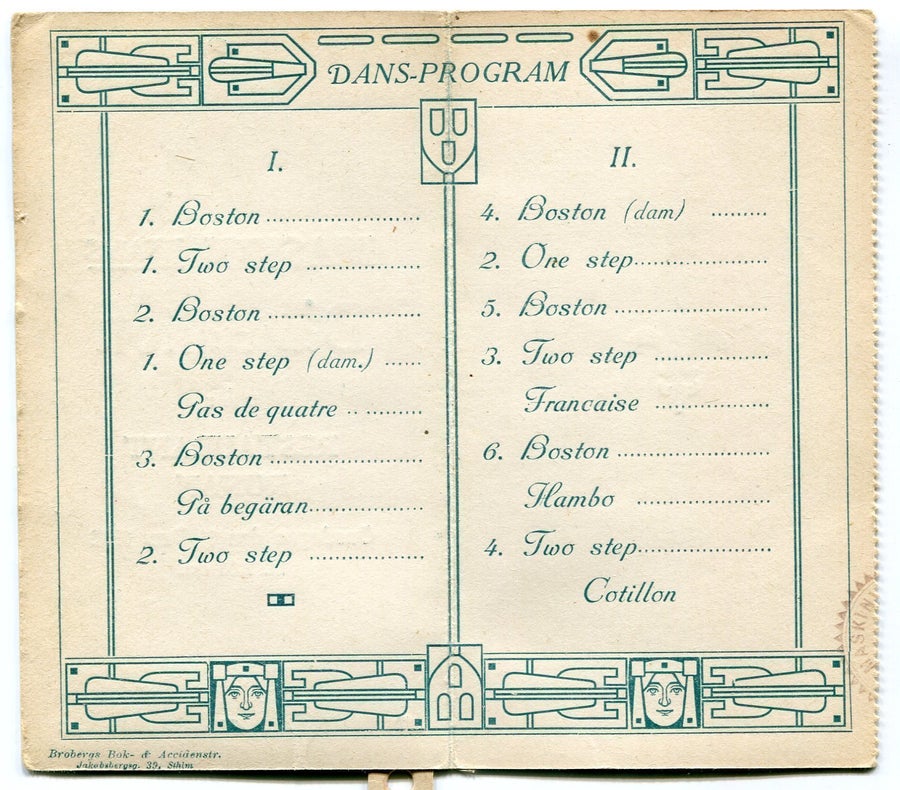 DANS-PROGRAM
I.
1. Boston ......................
1. Two step ................
2. Boston ......................
1. One step (dam.) ......
Pas de quatre .. .........
3. Boston ......................
På begäran.................
2. Two step ................
II.
4. Boston (dam) ........
2. One step...................
5. Boston ......................
3. Two step ................
Francaise ................
6. Boston ......................
Hambo ...................
4. Two step...................
Cotillon
Brobergs Bok- & Accidenstr.
Jakobsbergsg. 39, Sthlm
MASKIN